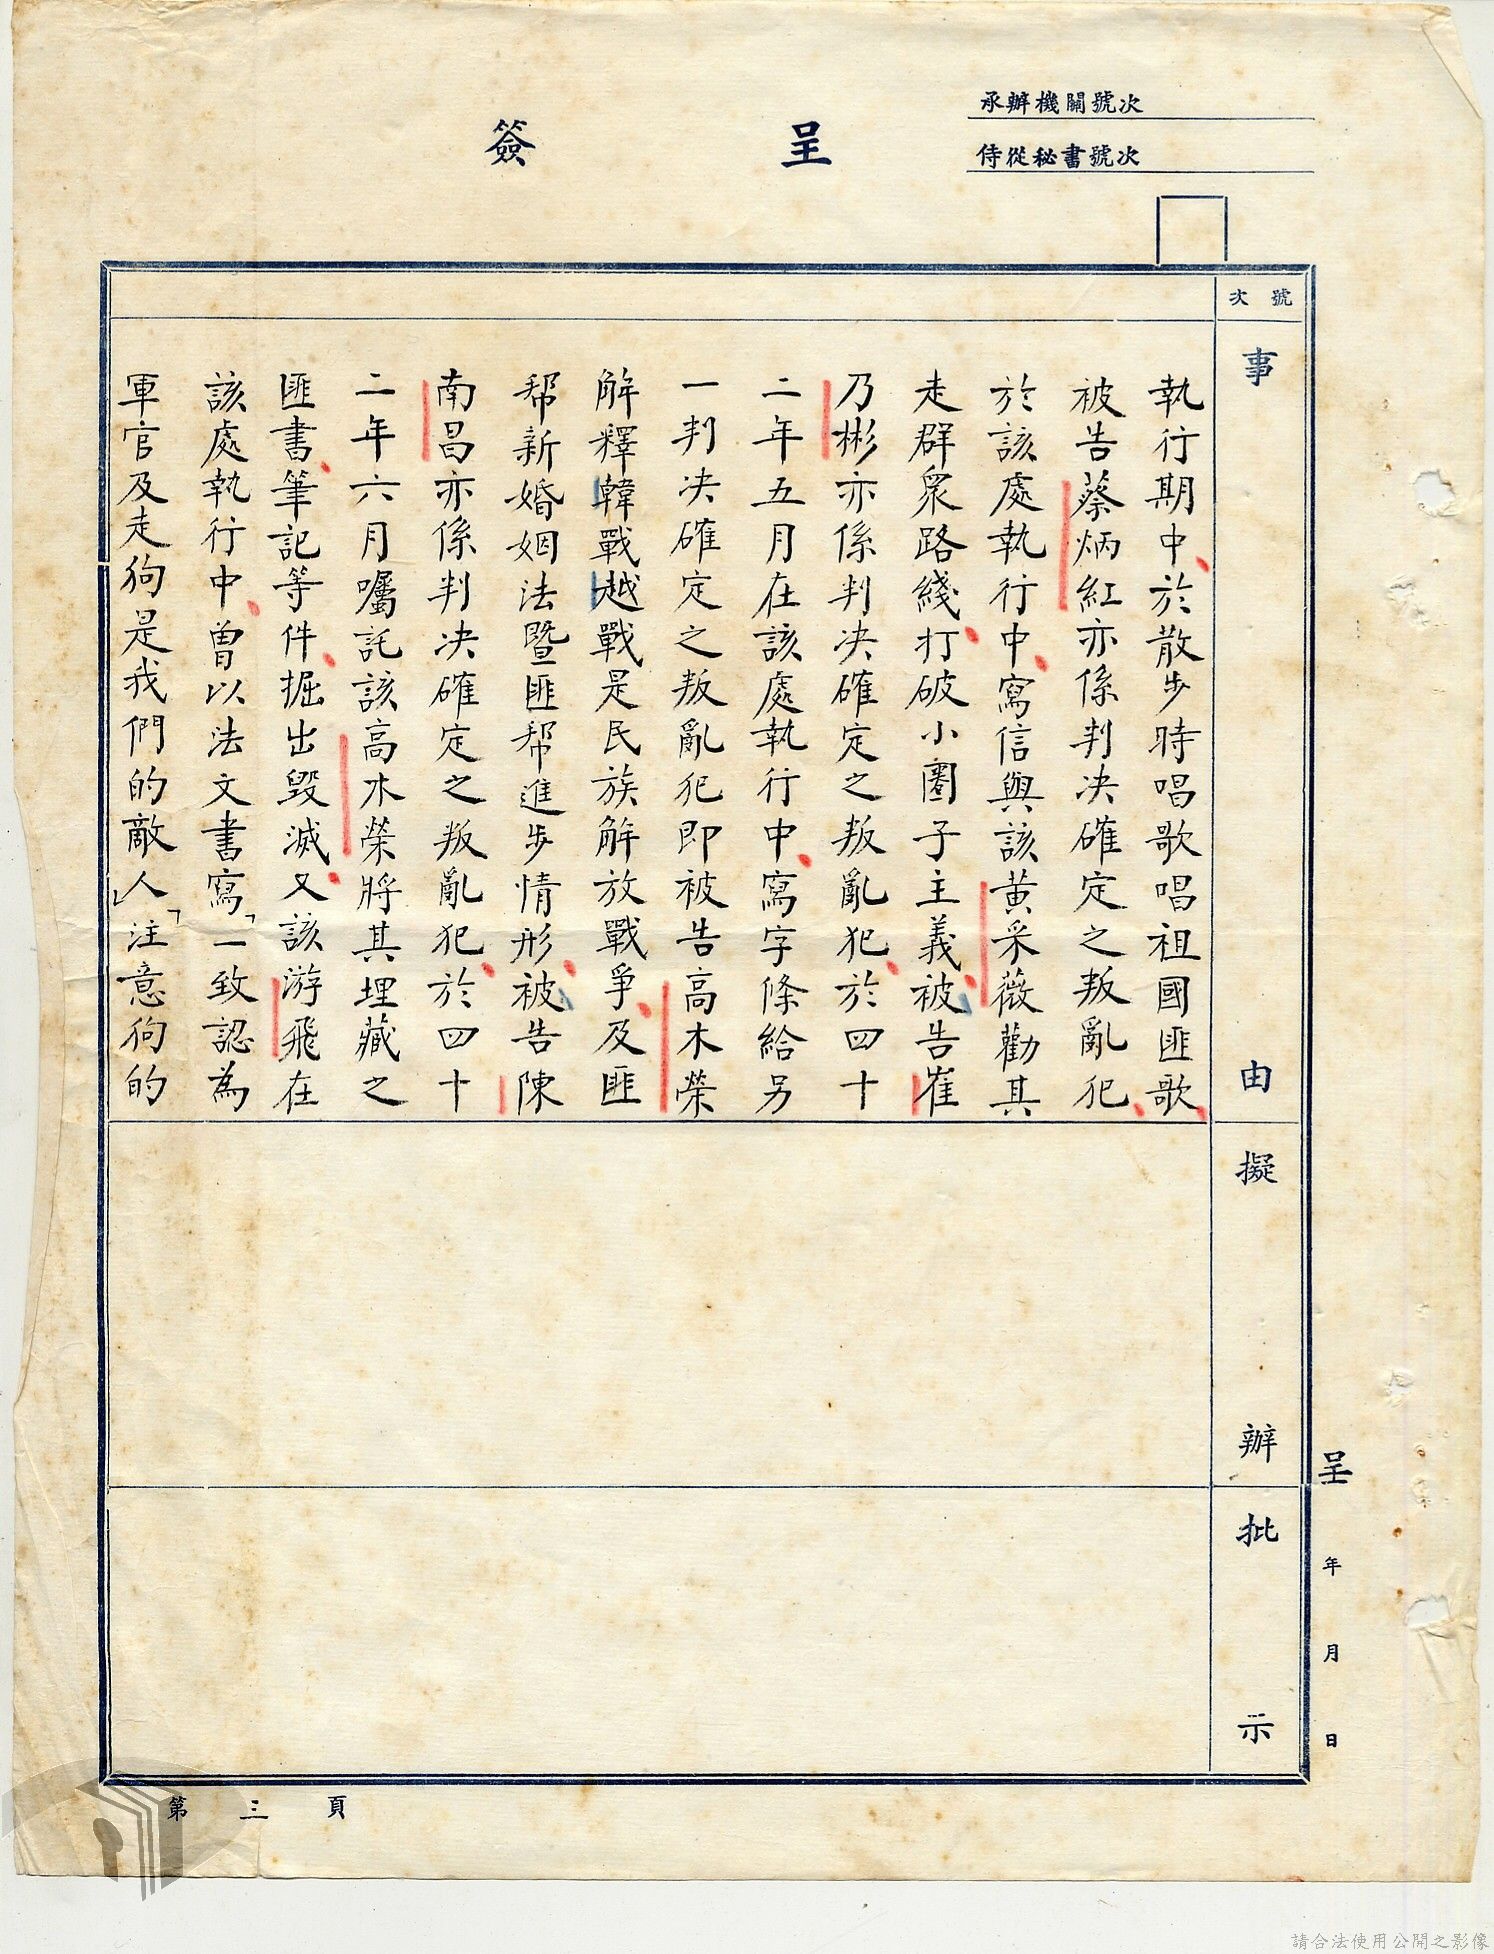 承辦機關號次
侍從秘書號次
簽呈
號次
事由
擬辦
批示
執行期中、於散步時唱歌唱祖國匪歌、
被告蔡炳紅亦係判决確定之叛亂犯、
於該處執行中、寫信與該黃采薇勸其
走群眾路綫、打破小圈子主義、被告崔
乃彬亦係判决確定之叛亂犯、於四十
二年五月在該處執行中、寫字條給另
一判决確定之叛亂犯即被告高木榮
解釋韓戰越戰是民族解放戰爭、及匪
幇新婚姻法暨匪幇進步情形、被告陳
南昌亦係判决確定之叛亂犯、於四十
二年六月囑託該高木榮將其埋藏之
匪書、筆記等件、掘出毀滅、又該游飛在
該處執行中、曾以法文書寫「一致認為
軍官及走狗是我們的敵人」「注意狗的
呈　年　月　日
第三頁
請合法使用公開之影像